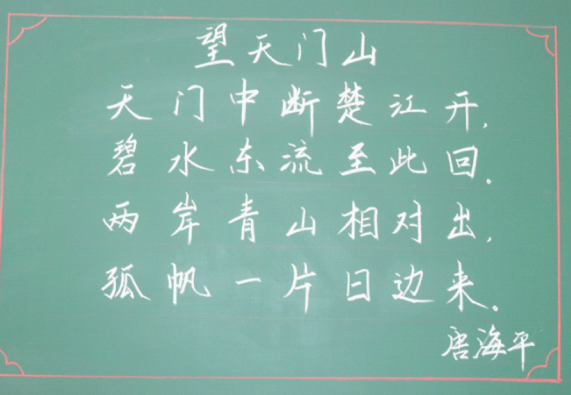 望天门山
天门中断楚江开,
碧水东流至此回.
两岸青山相对出,
孤帆一片日边来.
唐海平